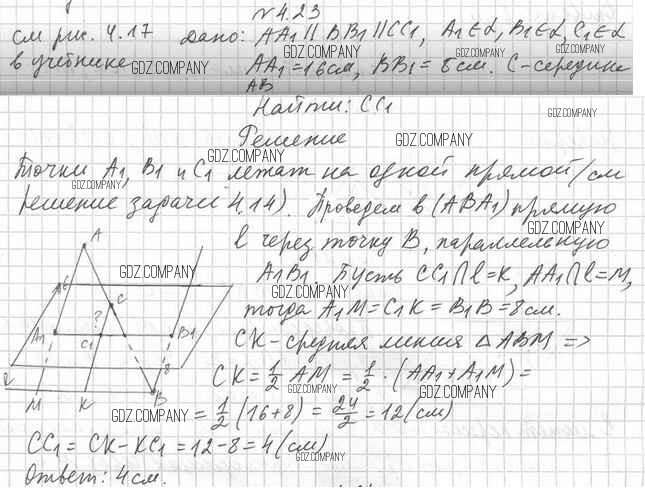 №4.23
см рис. 4.17 Дано: AA1 || BB1 || CC1, A1∈α, B1∈α, C1∈α
в учебнике GDZ.COMPANY AA1=16см, BB1=8см. C-середина
AB
Найти: CC1
Решение
Точки A1, B1 и C1 лежат на одной прямой (см
решение задачи 4.14). Проведем в (ABA1) прямую
l через точку B, параллельную
A1B1. Пусть CC1∩l=K, AA1∩l=M,
тогда A1M=C1K=B1B=8см.
CK-средняя линия △ABM =>
CK=1/2 AM=1/2·(AA1+A1M)=
=1/2(16+8)=24/2=12(см)
CC1=CK-KC1=12-8=4(см)
Ответ: 4см.
A
C
?
A1
C1
B1
8
M
K
B
GDZ.COMPANY
GDZ.COMPANY
GDZ.COMPANY
GDZ.COMPANY
GDZ.COMPANY
GDZ.COMPANY
GDZ.COMPANY
GDZ.COMPANY
GDZ.COMPANY
GDZ.COMPANY
GDZ.COMPANY
GDZ.COMPANY
GDZ.COMPANY
GDZ.COMPANY